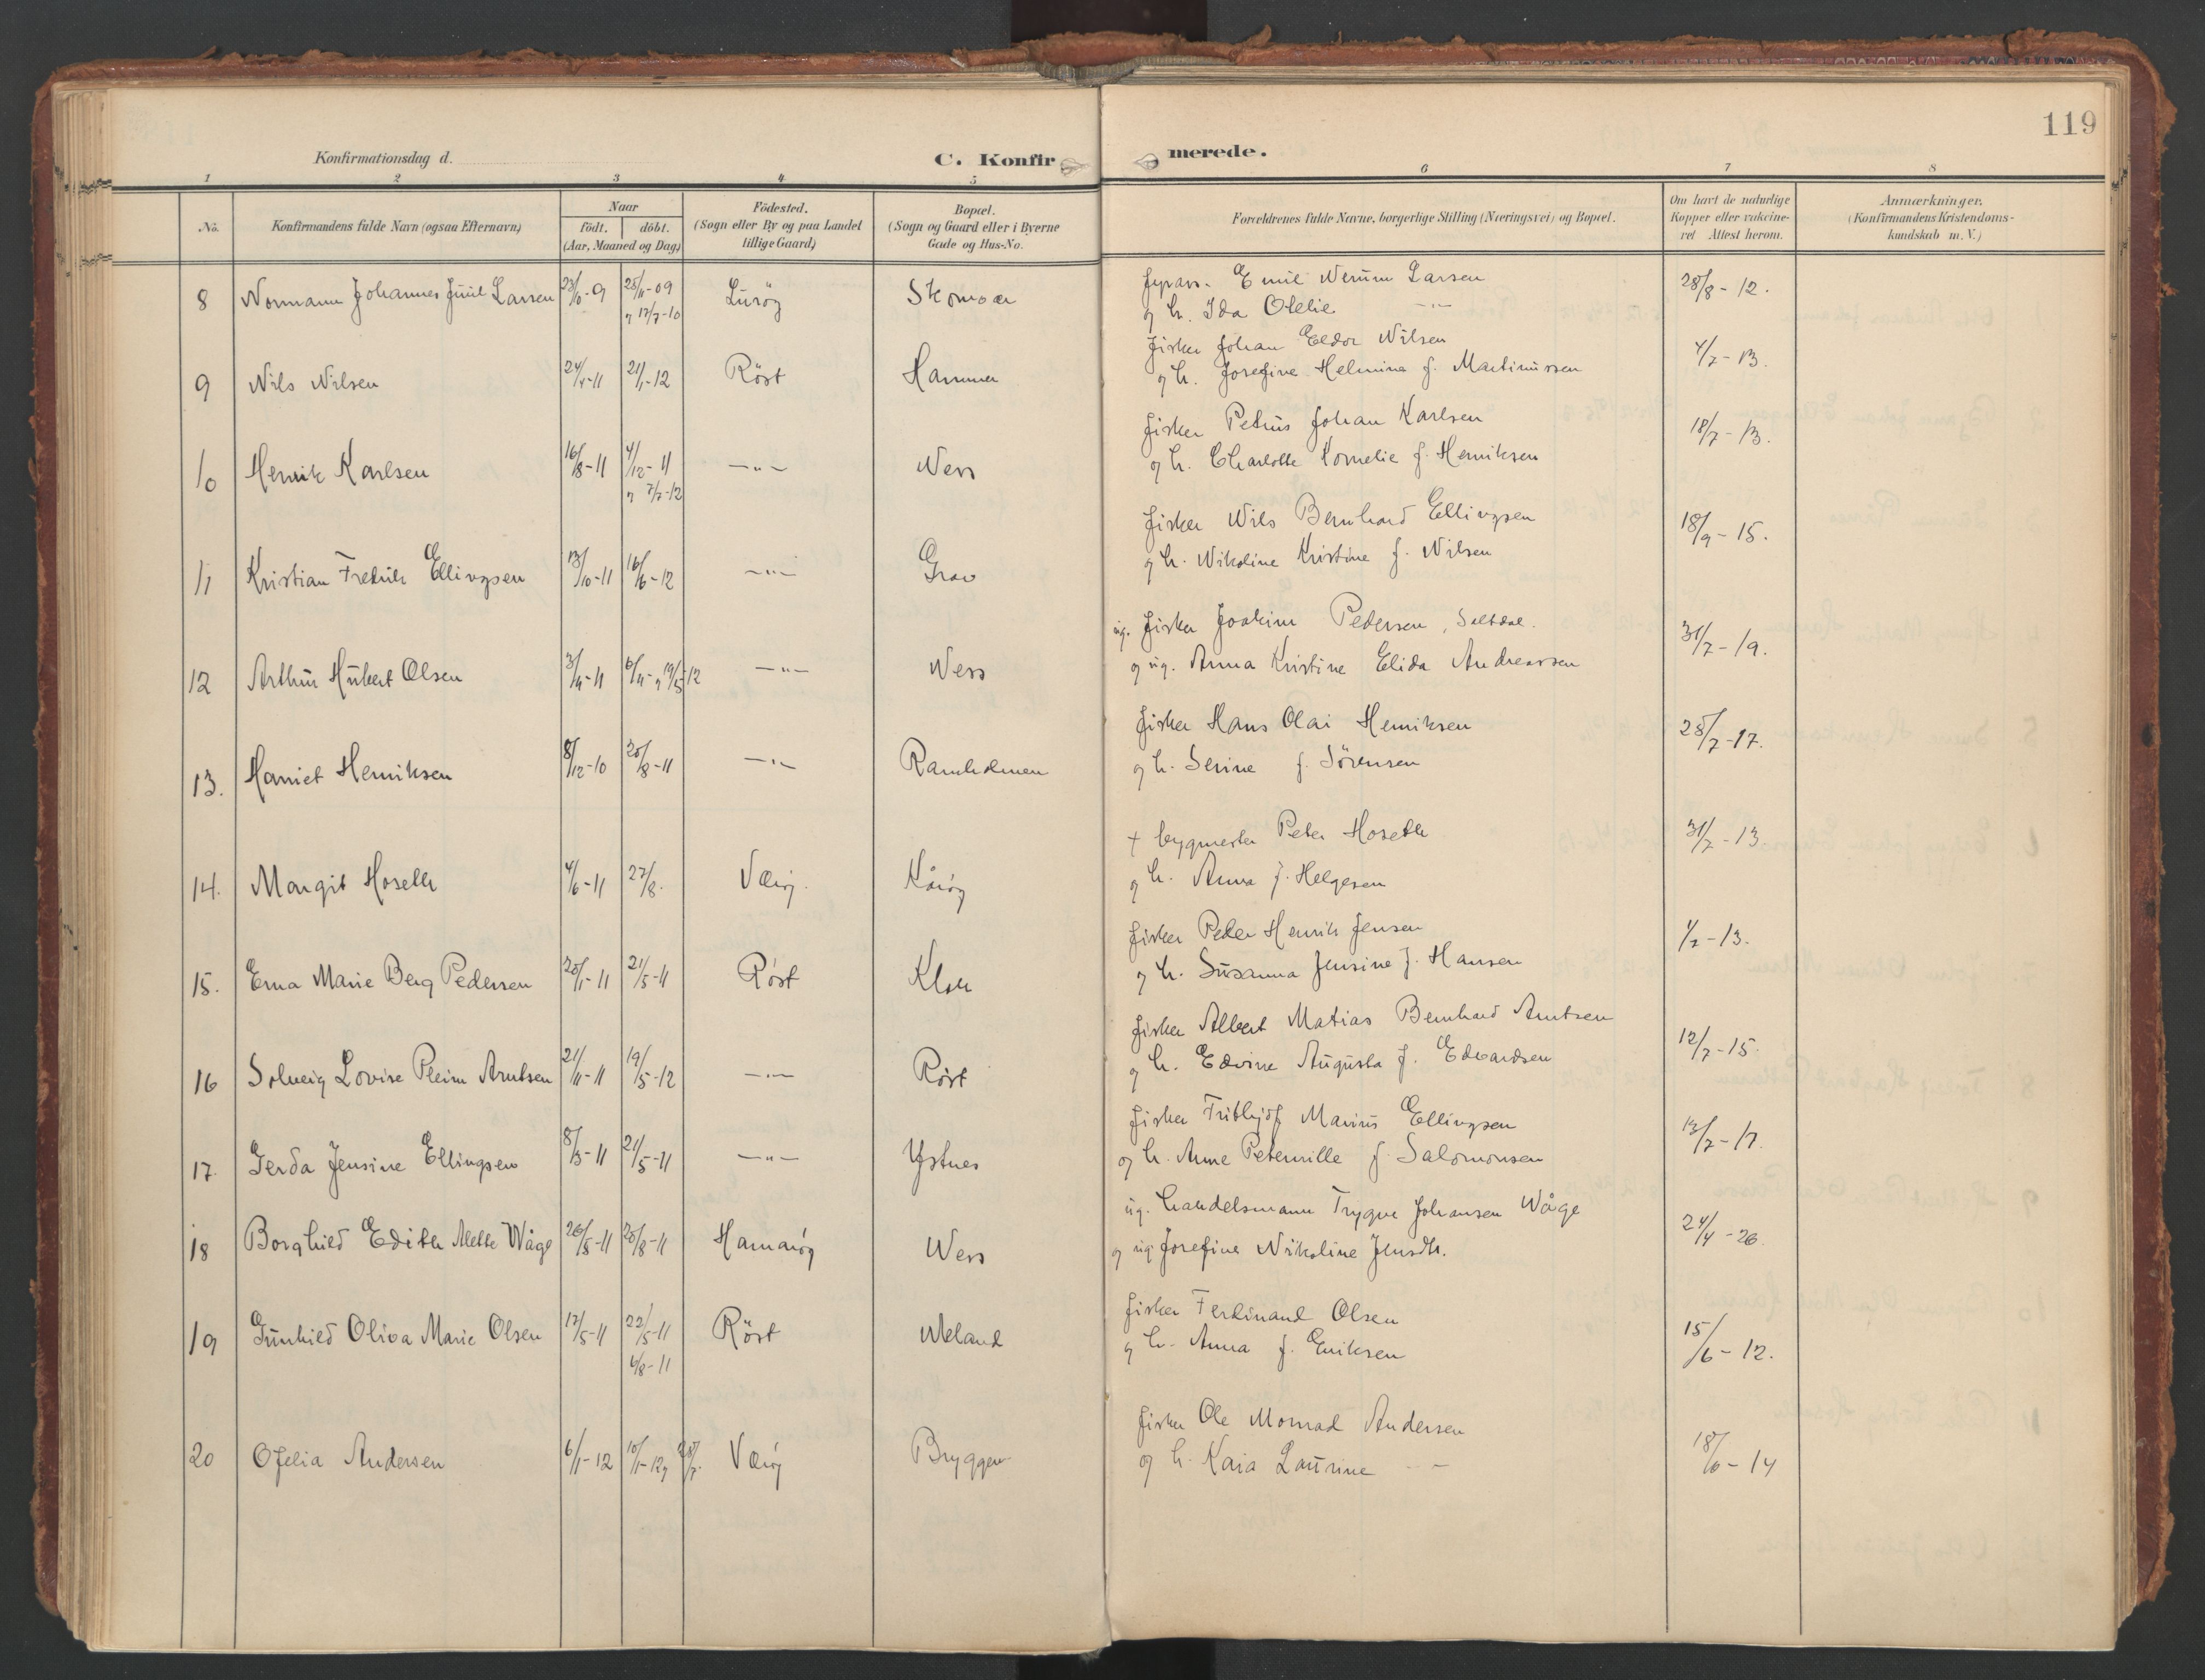 119
Konfirmationsdag d.
C. Konfirmerede.
1 2 3 4 5 6 7 8
No.
Konfirmandens fulde Navn (ogsaa Efternavn)
Naar
födt. döbt.
(Aar, Maaned og Dag)
Födested.
(Sogn eller By og paa Landet
tillige Gaard)
Bopæl.
(Sogn og Gaard eller i Byerne
Gade og Hus-No.
Forældrenes fulde Navne, borgerlige Stilling (Næringsvei) og Bopæl.
Om havt de naturlige
Kopper eller vakcine-
ret Attest herom.
Anmærkninger.
(Konfirmandens Kristendoms-
kundskab m. V.)
8 Normann Johannes Juul Larsen 23/10-09 28/11-09 Lurøy Skomvær Fyrass. Emil Nerum Larsen 28/8-12.
og 17/7-10 og h. Ida Otelie -"-
9 Nils Nilsen 24/4-11 21/1-12 Röst Hammer Fisker Johan Eldor Nilsen 4/7-13.
og h. Josefine Helmine f. Martinussen
10 Henrik Karlsen 16/8-11 4/12-11 -"- Ness Fisker Petrus Johan Karlsen 18/7-13.
og 7/7-12 og h. Charlotte Kornelie f. Henriksen
11 Kristian Fredrik Ellingsen 13/10-11 16/6-12 -"- Grav Fisker Nils Bernhard Ellingsen 18/9-15.
og h. Nikoline Kristine f. Nilsen
12 Arthur Hubert Olsen 3/4-11 6/4- og 19/5-12 -"- Ness ug. Fisker Joakim Pedersen, Saltdal. 31/7-19.
og ug. Anna Kristine Elida Andreassen
13. Harriet Henriksen 8/12-10 20/8-11 -"- Ramholmen Fisker Hans Olai Henriksen 28/7-17.
og h. Serine f. Sörensen
14. Margit Hoseth 4/6-11 27/8. Værøy. Kårøy + bygmester Peter Hoseth 31/7-13.
og h. Anna f. Helgesen
15. Erna Marie Berg Pedersen 20/1-11 21/5-11 Röst Klak Fisker Peder Henrik Jensen 1/7-13.
og h. Susanna Jensine f. Hansen
16 Solveig Lovise Pleim Arntsen 21/11-11 19/5-12 -"- Röst Fisker Albert Matias Bernhard Arntsen 12/7-15.
og h. Edvine Augusta f. Edvardsen
17. Gerda Jensine Ellingsen 8/3-11 21/5-11 -"- Ystnes Fisker Frithjof Marius Ellingsen 13/7-17.
og h. Anne Peternille f. Salomonsen
18 Borghild Edith Alette Wåge 26/5-11 20/8-11 Hamarøy Ness ug. handelsmann Trygve Johansen Wåge 24/4-26.
og ug. Josefine Nikoline Jensdtr.
19 Gunhild Oliva Marie Olsen 17/5-11 22/5-11 Röst Meland Fisker Ferdinand Olsen 15/6-12.
6/8-11 og h. Anna f. Eriksen
20 Ofelia Andersen 6/1-12 10/1-12 og 28/7. Værøy Bryggen Fisker Ole Monrad Andersen 18/6-14
og h. Kaia Laurine -"-